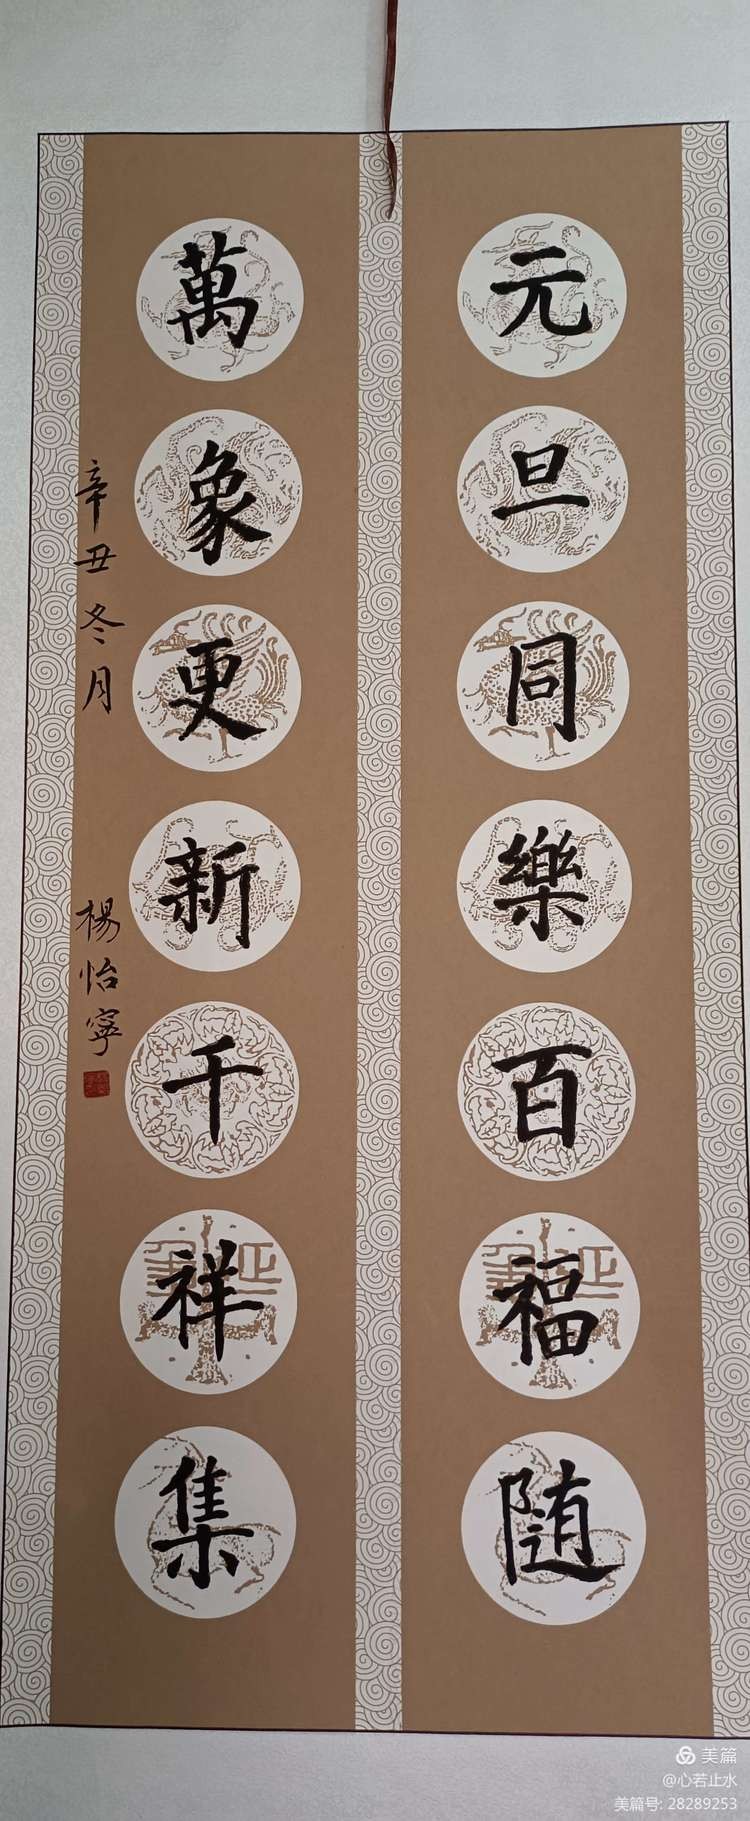 元旦同樂百福随
萬象更新千祥集
辛丑冬月
楊怡寧
美篇
@心若止水
美篇号: 28289253